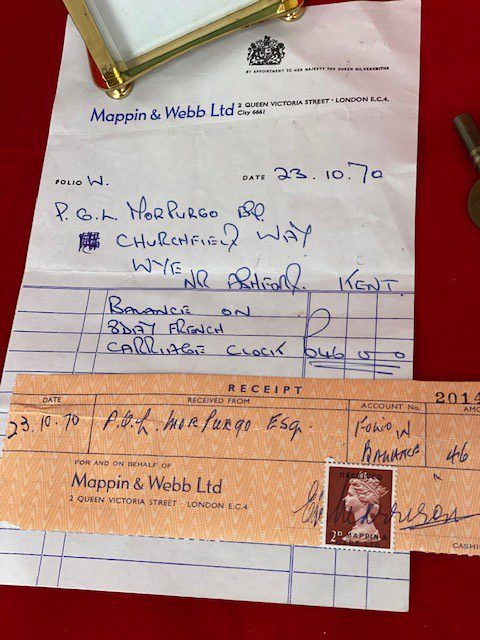 BY APPOINTMENT TO HER MAJESTY THE QUEEN SILVERSMITHS
Mappin & Webb Ltd 2 QUEEN VICTORIA STREET · LONDON E.C.4.
City 6661
FOLIO W. DATE 23.10.70
P.G.L. MORPURGO
CHURCHFIELD WAY
WYE
NR ASHFORD. KENT.
BALANCE ON
8 DAY FRENCH
CARRIAGE CLOCK £46 0 0
RECEIPT
2014
DATE RECEIVED FROM ACCOUNT No. AMO
23.10.70 P.G.L. MORPURGO ESQ. FOLIO W
BALANCE 46
FOR AND ON BEHALF OF
Mappin & Webb Ltd
2 QUEEN VICTORIA STREET LONDON E.C.4
RECEIVED
2D MAPPIN &
CASHI